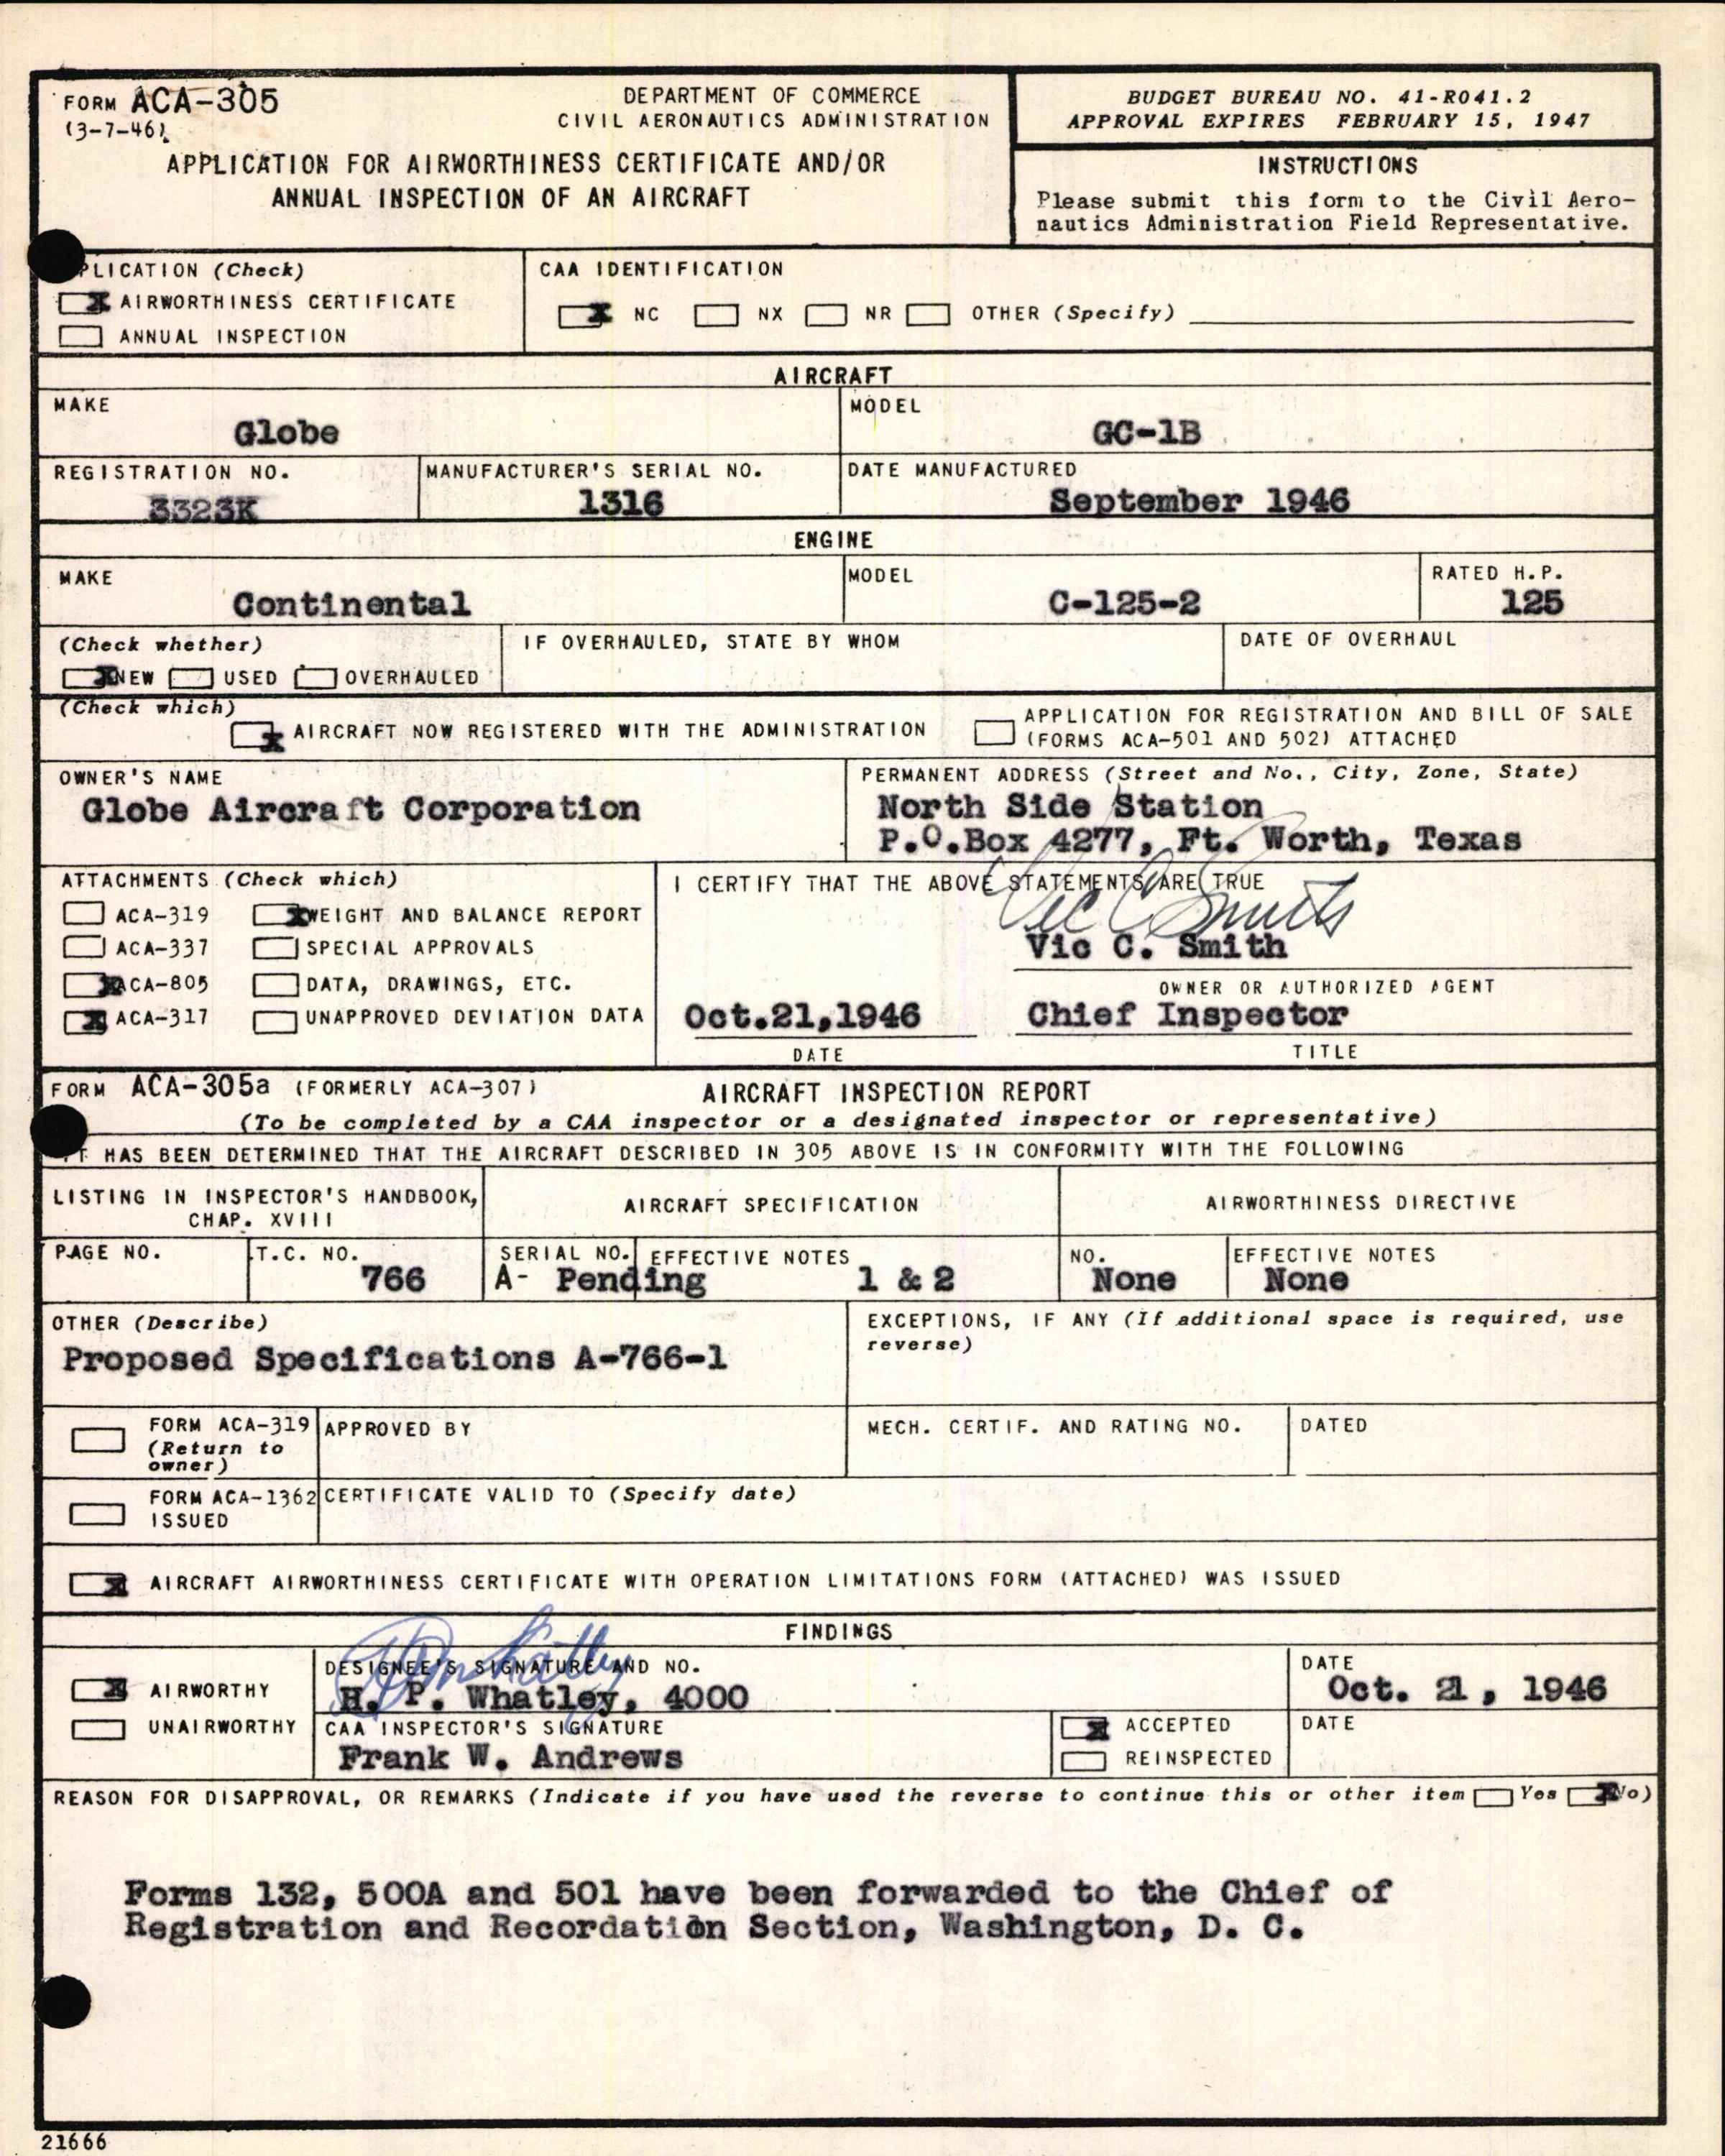 FORM ACA-305
(3-7-46)
DEPARTMENT OF COMMERCE
CIVIL AERONAUTICS ADMINISTRATION
APPLICATION FOR AIRWORTHINESS CERTIFICATE AND/OR
ANNUAL INSPECTION OF AN AIRCRAFT
BUDGET BUREAU NO. 41-R041.2
APPROVAL EXPIRES FEBRUARY 15, 1947
INSTRUCTIONS
Please submit this form to the Civil Aero-
nautics Administration Field Representative.
PLICATION (Check)
X AIRWORTHINESS CERTIFICATE
ANNUAL INSPECTION
CAA IDENTIFICATION
X NC NX NR OTHER (Specify)
AIRCRAFT
MAKE
Globe
MODEL
GC-1B
REGISTRATION NO.
3323K
MANUFACTURER'S SERIAL NO.
1316
DATE MANUFACTURED
September 1946
ENGINE
MAKE
Continental
MODEL
C-125-2
RATED H.P.
125
(Check whether)
X NEW USED OVERHAULED
IF OVERHAULED, STATE BY WHOM
DATE OF OVERHAUL
(Check which)
X AIRCRAFT NOW REGISTERED WITH THE ADMINISTRATION
APPLICATION FOR REGISTRATION AND BILL OF SALE
(FORMS ACA-501 AND 502) ATTACHED
OWNER'S NAME
Globe Aircraft Corporation
PERMANENT ADDRESS (Street and No., City, Zone, State)
North Side Station
P.O.Box 4277, Ft. Worth, Texas
ATTACHMENTS (Check which)
ACA-319 X WEIGHT AND BALANCE REPORT
ACA-337 SPECIAL APPROVALS
X ACA-805 DATA, DRAWINGS, ETC.
X ACA-317 UNAPPROVED DEVIATION DATA
I CERTIFY THAT THE ABOVE STATEMENTS ARE TRUE
Vic C Smith
Vic C. Smith
OWNER OR AUTHORIZED AGENT
Oct.21,1946 Chief Inspector
DATE TITLE
FORM ACA-305a (FORMERLY ACA-307) AIRCRAFT INSPECTION REPORT
(To be completed by a CAA inspector or a designated inspector or representative)
IT HAS BEEN DETERMINED THAT THE AIRCRAFT DESCRIBED IN 305 ABOVE IS IN CONFORMITY WITH THE FOLLOWING
LISTING IN INSPECTOR'S HANDBOOK,
CHAP. XVIII
AIRCRAFT SPECIFICATION
AIRWORTHINESS DIRECTIVE
PAGE NO.
T.C. NO.
766
SERIAL NO. EFFECTIVE NOTES
A- Pending 1 & 2
NO.
None
EFFECTIVE NOTES
None
OTHER (Describe)
Proposed Specifications A-766-1
EXCEPTIONS, IF ANY (If additional space is required, use
reverse)
FORM ACA-319
(Return to
owner)
APPROVED BY
MECH. CERTIF. AND RATING NO.
DATED
FORM ACA-1362
ISSUED
CERTIFICATE VALID TO (Specify date)
X AIRCRAFT AIRWORTHINESS CERTIFICATE WITH OPERATION LIMITATIONS FORM (ATTACHED) WAS ISSUED
FINDINGS
X AIRWORTHY
UNAIRWORTHY
DESIGNEE'S SIGNATURE AND NO.
H P Whatley
H. P. Whatley, 4000
DATE
Oct. 21, 1946
CAA INSPECTOR'S SIGNATURE
Frank W. Andrews
X ACCEPTED
REINSPECTED
DATE
REASON FOR DISAPPROVAL, OR REMARKS (Indicate if you have used the reverse to continue this or other item Yes X No)
Forms 132, 500A and 501 have been forwarded to the Chief of
Registration and Recordation Section, Washington, D. C.
21666